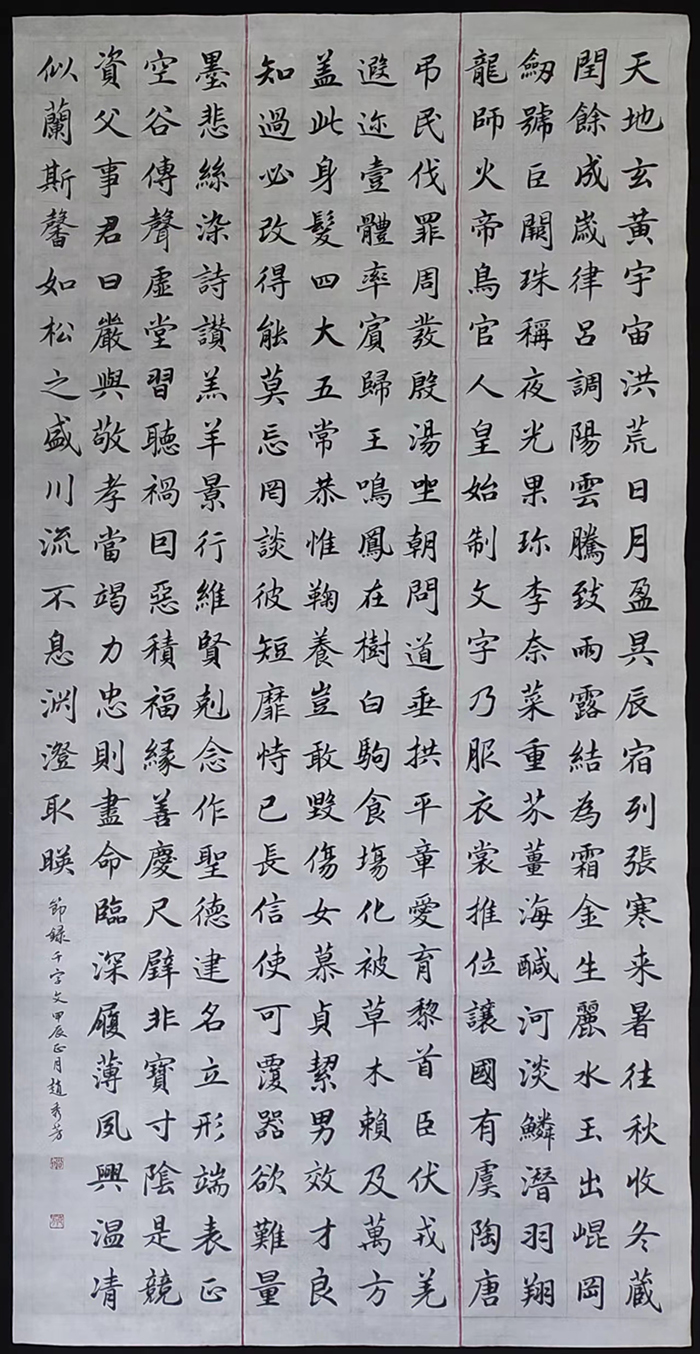 天地玄黃宇宙洪荒日月盈昃辰宿列張寒来暑往秋收冬蔵
閏餘成歲律呂調陽雲騰致雨露結為霜金生麗水玉出崐岡
劒號巨闕珠稱夜光果珎李奈菜重芥薑海鹹河淡鱗潛羽翔
龍師火帝鳥官人皇始制文字乃服衣裳推位讓國有虞陶唐
弔民伐罪周發殷湯坐朝問道垂拱平章愛育黎首臣伏戎羌
遐迩壹體率賓歸王鳴鳳在樹白駒食場化被草木賴及萬方
盖此身髮四大五常恭惟鞠養豈敢毀傷女慕貞絜男效才良
知過必改得能莫忘罔談彼短靡恃己長信使可覆器欲難量
墨悲絲染詩讃羔羊景行維賢剋念作聖德建名立形端表正
空谷傳聲虛堂習聽禍因惡積福緣善慶尺璧非寶寸陰是競
資父事君曰嚴與敬孝當竭力忠則盡命臨深履薄夙興温凊
似蘭斯馨如松之盛川流不息渊澄取暎
節錄千字文甲辰正月趙秀芳